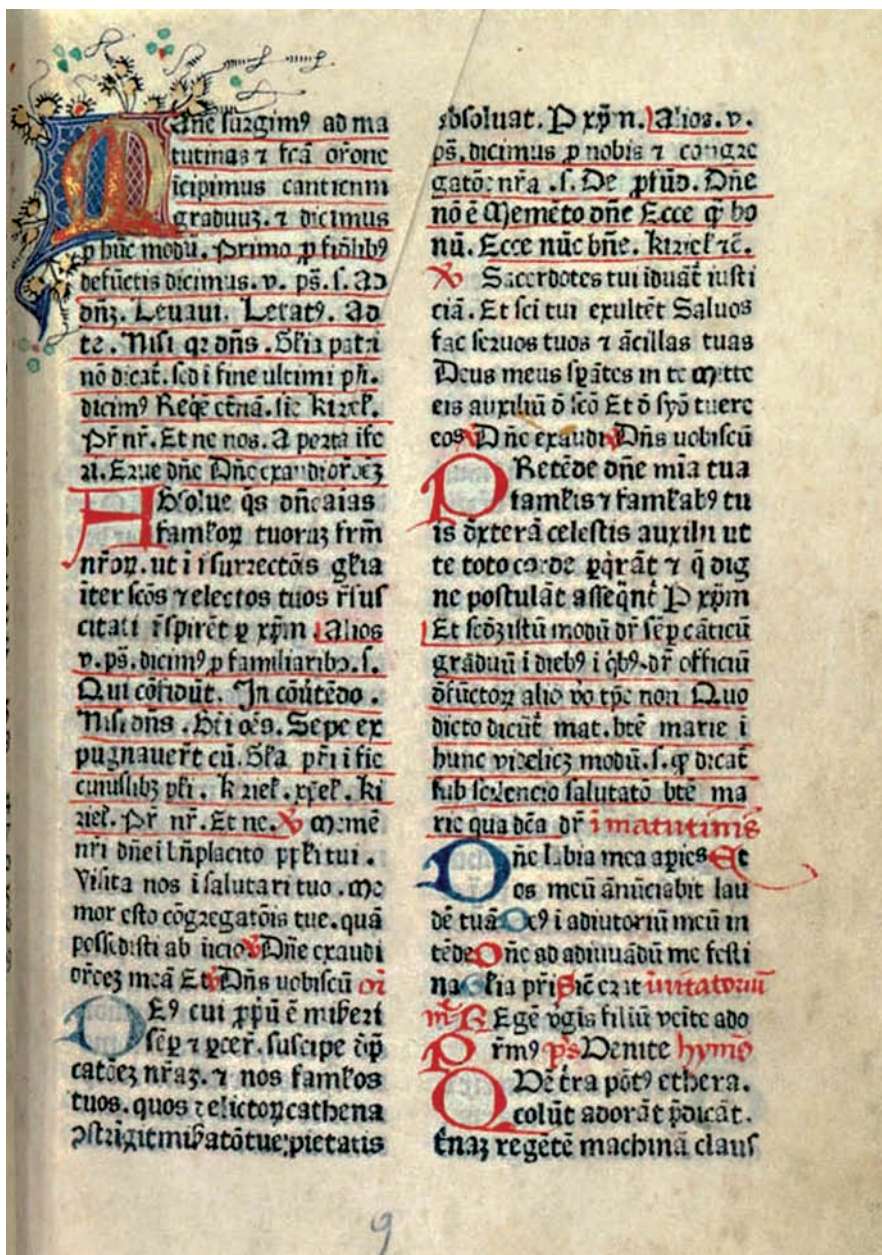 Mane surgim⁹ ad ma
tutinas ⁊ fcā or̄one
icipimus canticum
graduuʒ. ⁊ dicimus
p hūc modū. Primo p fidhlib⁹
defūctis dicimus. v. ps̄. s. Ad
dn̄ʒ. Leuaui. Letat⁹. Ad
te. Nisi qꝛ dn̄s. Gl̄ia patri
nō dicat̄. sed i fine ultimi ps̄.
dicim⁹ Req̄e et̄nā. sic kiriel̄.
Pr̄ nr̄. Et ne nos. A porta ife
ri. Erue dn̄e Dn̄e exaudi or̄oeʒ
ABsolue q̄s dn̄e aīas
famĺoꝝ tuoraʒ frm̄
nr̄oꝝ. ut i isurrectōis gĺia
iter scōs ⁊ electos tuos r̄sus
citati r̄spirēt ꝑ xp̄m Alios
v. ps̄. dicim⁹ ꝓ familiarib⁹. s.
Qui cōfidūt. In cōūtēdo.
Nisi dn̄s. Bt̄i oēs. Sepe ex
pugnauer̄t cū. Gĺa pr̄i i fie
cuiuslibʒ ps̄i. kiriel̄. xp̄el̄. ki
riel̄. Pr̄ nr̄. Et ne. ℣ Memē
nr̄i dn̄e i bn̄placito ppĺi tui.
Visita nos i salutari tuo. Me
mor esto cōgregatōis tue. quā
possedisti ab iīcio ℣ Dn̄e exaudi
or̄oeʒ meā Et ℣ Dn̄s uobiscū or̄
DE⁹ cui ꝓp̄ū ē misʼeri
sēꝑ ⁊ ꝑcer̄. suscipe d̄ꝑ
catōeʒ nr̄aʒ. ⁊ nos famĺos
tuos. quos delictoꝝ cathena
ꝯstrīgit misʼatō tue pietatis
absoluat. P xp̄m n. Alios. v.
ps̄. dicimus ꝓ nobis ⁊ congre
gatōe nr̄a. s. De ꝓfūd. Dn̄e
nō ē Memēto dn̄e Ecce q̄ bo
nū. Ecce nūc bn̄e. kiriel̄ ⁊c̄.
℣ Sacerdotes tui iduāt iusti
ciā. Et sci tui exultēt Saluos
fac seruos tuos ⁊ ācillas tuas
Deus meus sꝑātes in te Mitte
eis auxiliū d̄ scō Et d̄ syō tuere
eos ℣ Dn̄e exaudi ℣ Dn̄s uobiscū
PRetēde dn̄e mīa tua
famĺis ⁊ famĺab⁹ tu
is dexterā celestis auxilii ut
te toto corde ꝑq̄rāt ⁊ q̄ dig
ne postulāt asseq̄nt̄ P xp̄m
Et scdʒ istū modū dr̄ sēꝑ cāticū
graduū i dieb⁹ i qb⁹. dr̄ officiū
d̄fūctoꝝ alio ỏo tꝑe non Quo
dicto dicūt̄ mat. btē marie i
hunc videlicʒ modū. s. ꝙ dicat̄
sub scilencio salutatō btē ma
rie qua dc̄a dr̄ i matutinis
Dn̄e labia mea aꝑies Et
os meū ānūciabit lau
dē tuā De⁹ i adiutoriū meū in
tēde Dn̄e ad adiuuādū me festi
na Gĺia pr̄i Sic̄ erat inuitatoriū
Regē ỏgis filiū veīte ado
P rm⁹ ps̄ Venite hymō
QVē t̄ra pōt⁹ ethera.
colūt adorāt p̄dicāt.
t̄naʒ regētē machinā claus